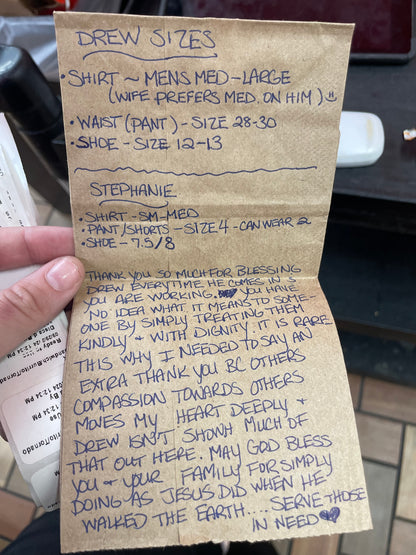 DREW SIZES
• SHIRT ~ MENS MED - LARGE
(WIFE PREFERS MED. ON HIM)
• WAIST (PANT) - SIZE 28-30
• SHOE - SIZE 12-13
STEPHANIE
• SHIRT - SM-MED
• PANT/SHORTS - SIZE 4 - CAN WEAR 2
• SHOE - 7.5/8
THANK YOU SO MUCH FOR BLESSING
DREW EVERYTIME HE COMES IN &
YOU ARE WORKING. YOU HAVE
NO IDEA WHAT IT MEANS TO SOME-
ONE BY SIMPLY TREATING THEM
KINDLY & WITH DIGNITY. IT IS RARE
THIS WHY I NEEDED TO SAY AN
EXTRA THANK YOU BC OTHERS
COMPASSION TOWARDS OTHERS
MOVES MY HEART DEEPLY &
DREW ISN'T SHOWN MUCH OF
THAT OUT HERE. MAY GOD BLESS
YOU & YOUR FAMILY FOR SIMPLY
DOING AS JESUS DID WHEN HE
WALKED THE EARTH.... SERVE THOSE
IN NEED